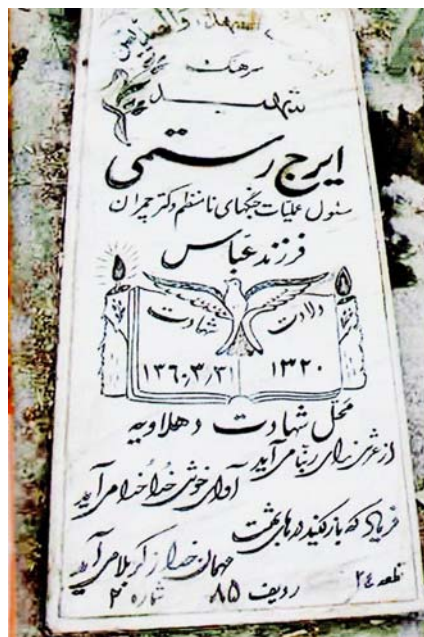 سرهنگ
شهید
ایرج رستمی
مسئول عملیات جنگهای نامنظم دکتر چمران
فرزند عباس
ولادت شهادت
۱۳۲۰ ۱۳۶۰/۳/۳۱
محل شهادت دهلاویه
از عرش ندای ربنا می آید
آوای خوش خدا خدا می آید
فریاد که باز کنید درهای بهشت
مهمان خدا ز کربلا می آید
قطعه ۲۴ ردیف ۸۵ شماره ۲۰